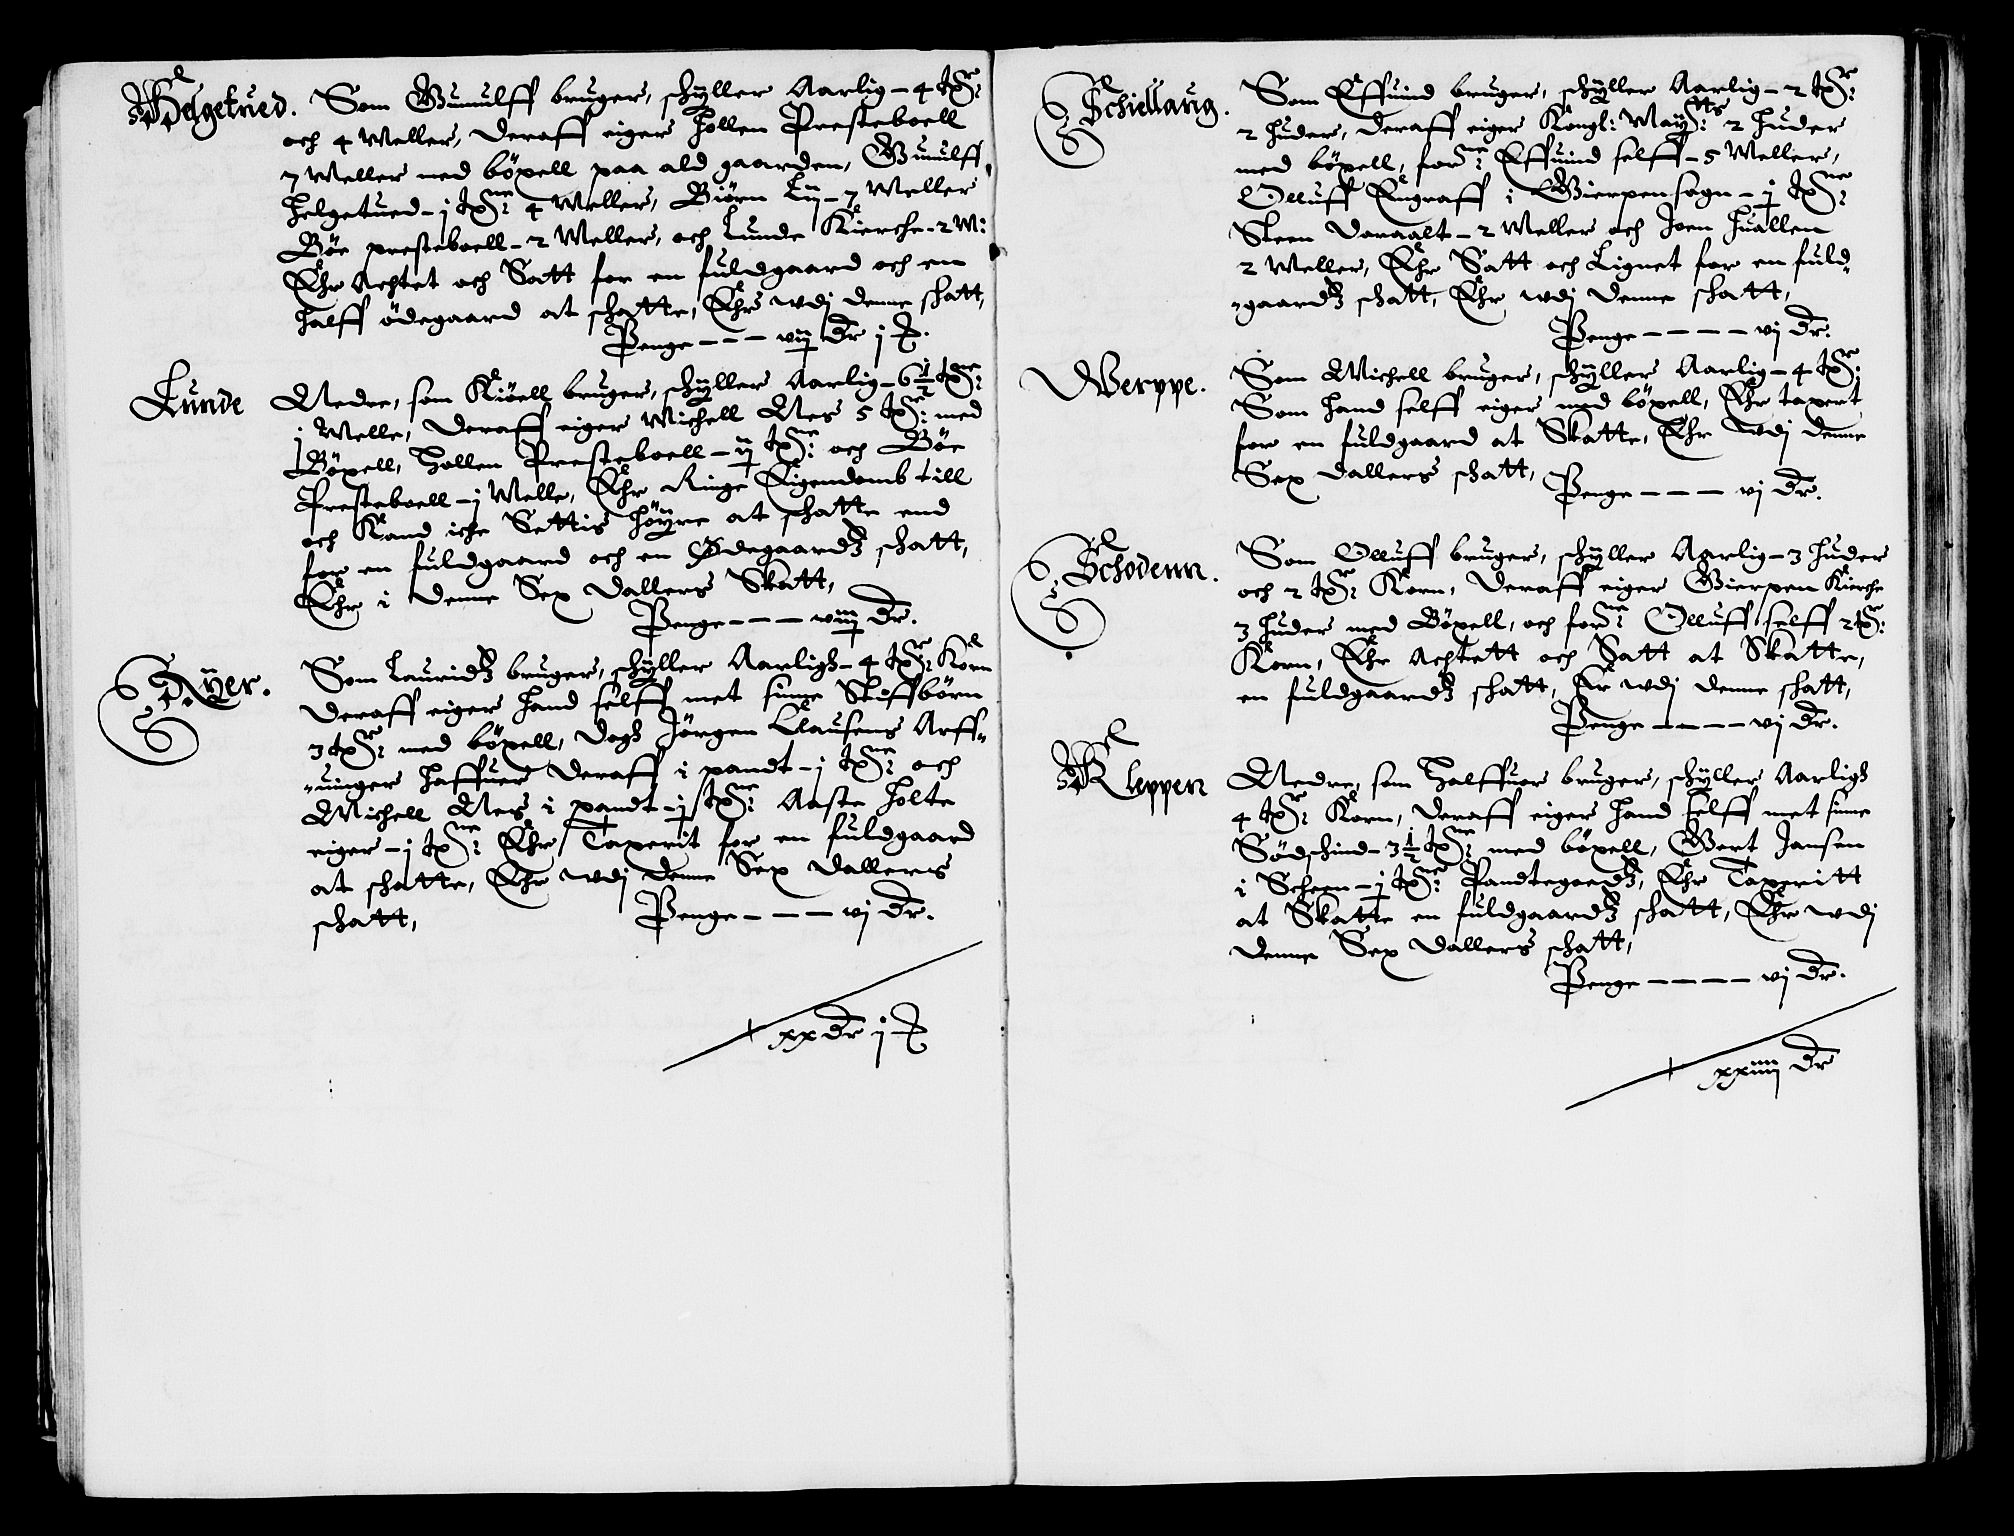 Helgetued. Som Gunulff bruger, schÿller Aarlig - 4 tnr:
och 4 Meller, deraff eiger Hollen Presteboell
7 Meller med böxell paa ald gaarden, Gunulff
Helgetued - j tne: 4 Meller, Biörn Lij - 7 Meller
Böe presteboell - 2 Meller, och Lunde Kierche - 2 M:
Ehr Achtet och Satt for en fuldgaard och en
halff ödegaard at schatte, Ehr wdj denne schatt,
Penge - - - vij dr j
Lunde Nedre, som Kiöell bruger, schÿller Aarlig - 6½ tne:
j Melle, deraff eiger Michell Nes 5 tnr: med
Böxell, Hollen Presteboell - ij tne: och Böe
Presteboell - j Melle, Ehr Ringe Eigendomb till
och Kand iche Settis höÿre at schatte end
for en fuldgaard och en Ödegaardtz schatt,
Ehr i denne Sex dallers Skatt,
Penge - - - viij dr.
Nÿer. Som Lauridtz bruger, schÿller Aarligh - 4 tnr: Korn
deraff eiger hand selff met sinne Stiffbörn
3 tnr: med böxell, dogh Jörgen Clausens Arff-
-uinger haffuer deraff i pandt - j tne: och
Michell Nes i pandt - j tne: Aaste Holte
eiger - j tne: Ehr Taxerit for en fuldgaard
at schatte, Ehr wdj denne Sex dallers
schatt, Penge - - - vj dr.
xx dr j
Schiellaug. Som Effuind bruger, schÿller Aarlig - 2 tnr:
2 huder, deraff eiger Kongl: Maÿtts: 2 huder
med böxell, forne: Effuind selff - 5 Meller,
Olluff Engraff i Gierpensogn - j tne:
Steen Doraalt - 2 Meller och Joen Huallen
2 Meller, Ehr Satt och Lignet for en fuld-
-gaardtz schatt, Ehr wdj denne schatt,
Penge - - - - vj dr.
Werppe. Som Michell bruger, schÿller Aarlig - 4 tnr:
Som hand selff eiger med böxell, Ehr taxert
for en fuldgaard at Skatte, Ehr wdj denne
Sex dallers schatt,
Penge - - - vj dr.
Schodenn. Som Olluff bruger, schÿller Aarlig - 3 huder
och 2 tnr: Korn, deraff eiger Gierpen Kirche
3 huder med Böxell, och forne: Olluff selff 2 tnr:
Korn, Ehr Achtett och Satt at Skatte,
en fuldgaardtz schatt, Er wdj denne schatt,
Penge - - - - vj dr.
Kleppen Nedre, som Halffuor bruger, schÿller Aarligh
4 tnr: Korn, deraff eiger hand selff met sine
Södschind - 3½ tne: med böxell, Gert Jansen
i Scheen - j tne: Pandtegoedtz, Ehr Taxeritt
at Skatte en fuldgaardtz schatt, Ehr wdj
denne Sex dallers schatt,
Penge - - - - vj dr.
xxiiij dr